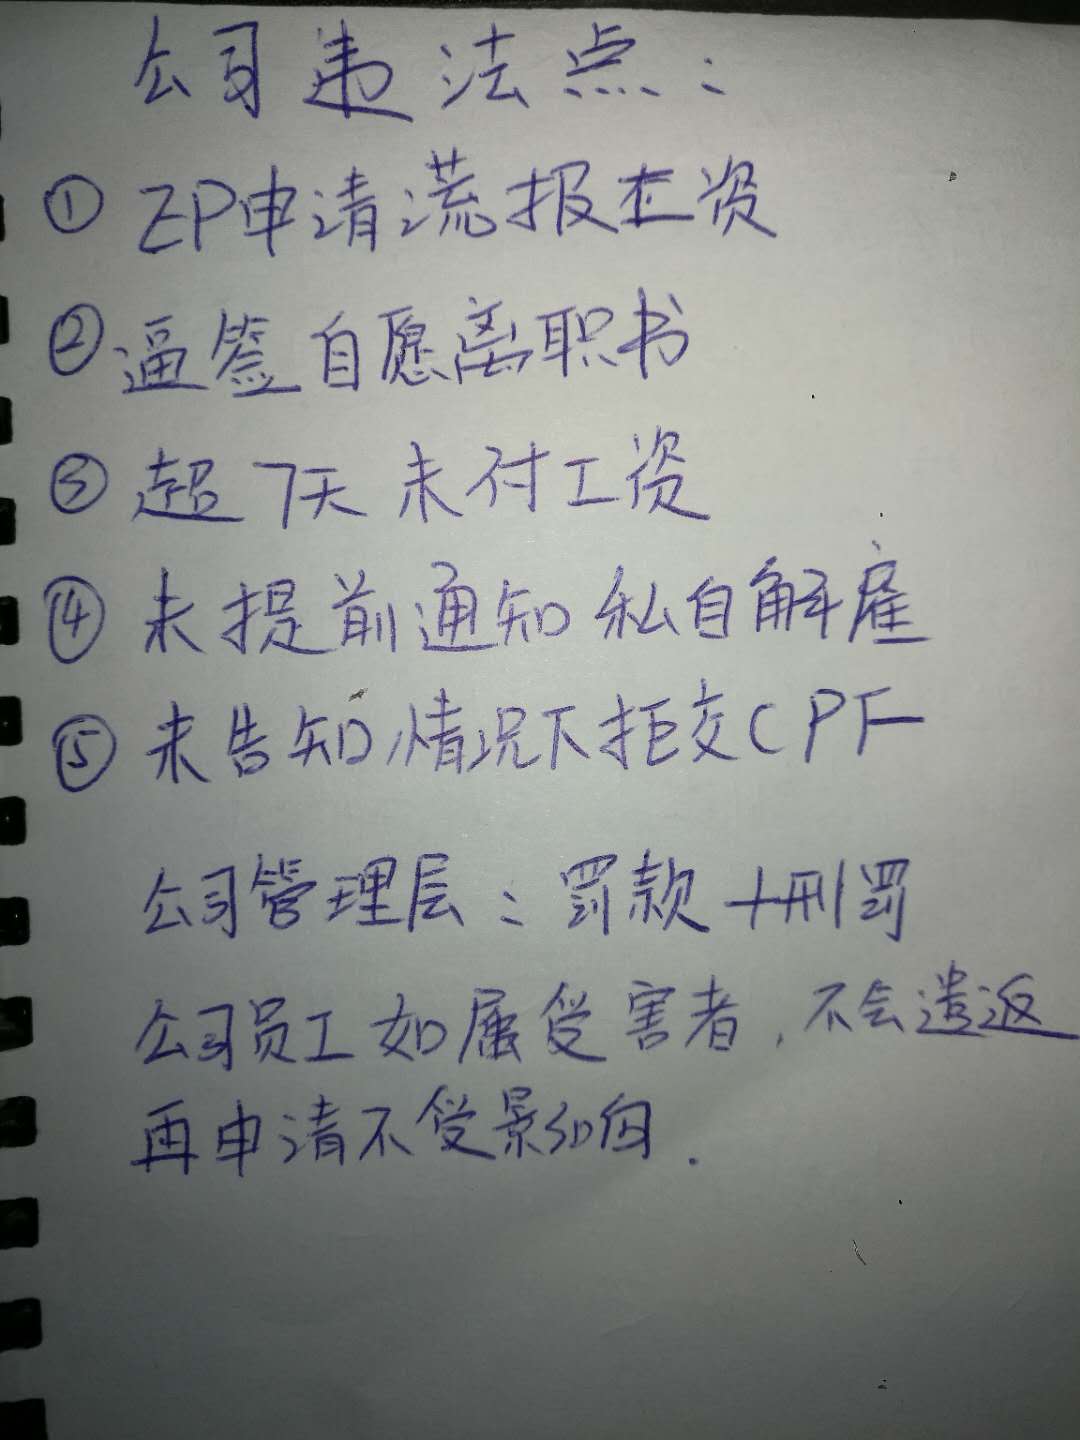 公司违法点：
① EP申请谎报工资
② 逼签自愿离职书
③ 超7天未付工资
④ 未提前通知私自解雇
⑤ 未告知情况下拒交CPF
公司管理层：罚款+刑罚
公司员工如属受害者，不会遣返
再申请不受影响.